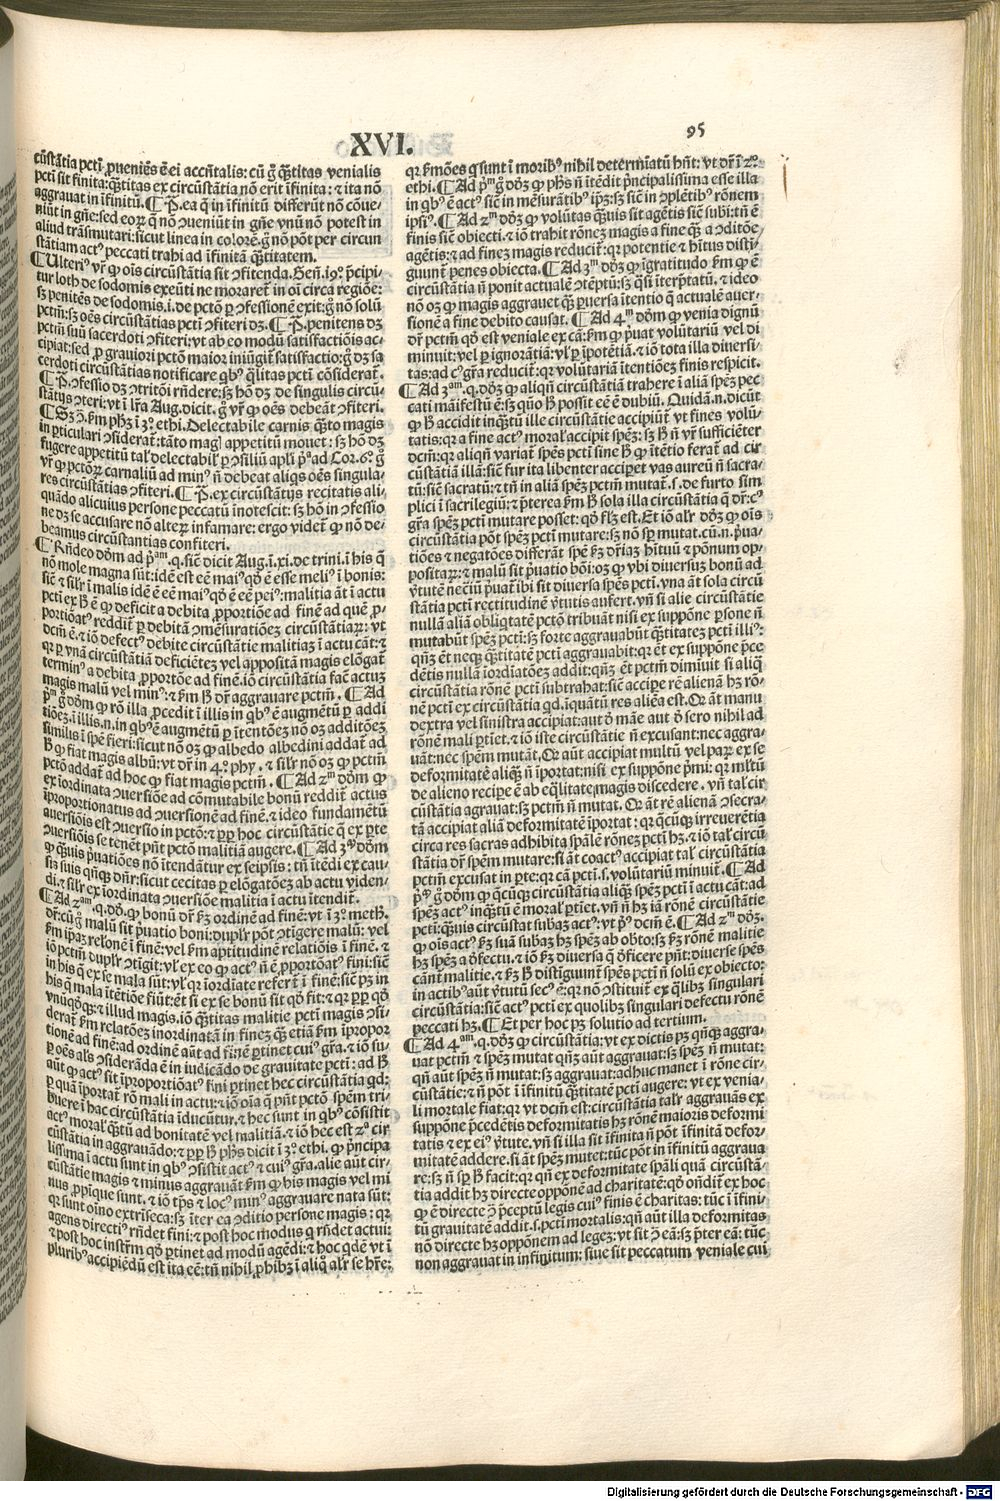 XVI.
95
cūstātia pctī ꝓueniēs ē ei accñtalis: cū g̊ q̄titas venialis
pctī sit finita: q̄titas ex circūstātia nō erit īfinita: ⁊ ita nō
aggrauat in īfinitū. ¶ P̄. ea q̄ in īfinitū differūt nō cōue-
niūt in gñe: sed eoꝝ q̄ nō ꝯueniūt in gñe vnū nō potest in
aliud trāsmutari: sicut linea in colorē. g̊ nō pōt per circun
stātiam actꝰ peccati trahi ad īfinitā q̄titatem.
¶ Ulteriꝰ vr̄ ꝙ oīs circūstātia sit ꝯfitenda. Geñ. 19. p̄cipi-
tur loth de sodomis exeūti ne moraret̄ in oī circa regiōe:
sꝫ penitēs de sodomis .i. de pctō ꝑ ꝯfessionē exit: g̊ nō solū
pctm̄: sꝫ oēs circūstātias pctī ꝯfiteri dꝫ. ¶ P̄. penitens dꝫ
pctm̄ suū sacerdoti ꝯfiteri: vt ab eo modū satisfactiōis ac-
cipiat: sed ꝓ grauiori pctō maior iniūgit̄ satisfactio: g̊ dꝫ sa
cerdoti circūstātias notificare qbꝰ q̄litas pctī cōsiderat̄.
¶ P̄. ꝯfessio dꝫ ꝯtritōi rñdere: sꝫ hō dꝫ de singulis circū-
stātijs ꝯteri: vt ī lr̄a Aug. dicit. g̊ vr̄ ꝙ oēs debeāt ꝯfiteri.
¶ Sꝫ ꝯ̄. k̄m ph̄ꝫ ī 3º. ethi. Delectabile carnis q̄to magis
in ꝑticulari ꝯsiderat̄: tāto magꝭ appetitū mouet: sꝫ hō dꝫ
fugere appetitū tal̄ delectabil̄ ꝑ ꝯsiliū apl̄i p̄ª ad Cor. 6º. g̊
vr̄ ꝙ pctōꝝ carnaliū ad minꝰ ñ debeat aliqs oēs singula-
res circūstātias ꝯfiteri. ¶ P̄. ex circūstātijs recitatis ali-
quādo alicuius persone peccatū inotescit: sꝫ hō in ꝯfessio
ne dꝫ se accusare nō alteꝝ infamare: ergo videt̄ ꝙ nō de-
beamus circūstantias confiteri.
¶ Rñdeo dōm ad p̄ªᵐ. q. sic̄ dicit Aug. ī. xi. de trini. ī his q̄
nō mole magna sūt: idē est eē maiꝰ qd̄ ē esse meliꝰ ī bonis:
sic̄ ⁊ silr̄ ī malis idē ē eē maiꝰ qd̄ ē eē peiꝰ: malitia āt ī actu
pctī ex ꝧ ē ꝙ deficit a debita ꝓportiōe ad finē ad quē ꝓ-
portiōat̄ reddit̄ ꝑ debitā ꝯmēsuratiōeꝫ circūstātiaꝝ: vt
dcm̄ ē. ⁊ iō defectꝰ debite circūstātie malitiaꝫ ī actu cāt: ⁊
qꝛ ꝑ vnā circūstātiā deficiēteꝫ vel appositā magis elōgat̄
terminꝰ a debita ꝓportōe ad finē. iō circūstātia fac̄ actuꝫ
magis malū vel minꝰ: ⁊ k̄m ꝧ dr̄ aggrauare pctm̄. ¶ Ad
p̄ᵐ g̊ dōm ꝙ rō illa ꝓcedit ī illis in qbꝰ ē augmētū ꝑ addi
tiōeꝫ. ī illis .n. in qbꝰ ē augmētū ꝑ ītentōeꝫ nō oꝫ additōeꝫ
similis ī spē fieri: sicut nō oꝫ ꝙ albedo albedini addat̄ ad
ꝧ ꝙ fiat magis albū: vt dr̄ in 4º. phy. ⁊ silr̄ nō oꝫ ꝙ pctm̄
pctō addat̄ ad hoc ꝙ fiat magis pctm̄. ¶ Ad 2ᵐ dōm ꝙ
ex īordinata ꝯuersiōe ad cōmutabile bonū reddit̄ actus
īproportionatus ad ꝯuersionē ad finē. ⁊ ideo fundamētū
auersiōis est ꝯuersio in pctō: ⁊ ꝑꝑ hoc circūstātie q̄ ex ꝑte
ꝯuersiōis se tenēt pñt pctō malitiā augere. ¶ Ad 3ᵐ dōm
ꝙ q̄uis p̄uatiōes nō ītendātur ex seipsis: tñ ītēdi ex cau-
sis suis qñqꝫ dñr: sicut cecitas ꝑ elōgatōeꝫ ab actu viden-
di. ⁊ silr̄ ex īordinata ꝯuersiōe malitia ī actu ītendit̄.
¶ Ad 2ᵃᵐ. q. dō. ꝙ bonū dr̄ k̄ꝫ ordinē ad finē: vt ī 3º meth.
dr̄: cū g̊ malū sit p̄uatio boni: duplr̄ pōt ꝯtigere malū: vel
k̄m ipaꝫ relonē ī finē: vel k̄m aptitudinē relatiōis ī finē. ⁊
iō pctm̄ duplr̄ ꝯtīgit: vl̓ ex eo ꝙ actꝰ ñ ē ꝓportōatꝰ fini: sic̄
in his q̄ ex se mala sūt: vl̓ qꝛ īordīate refert̄ ī finē: sic̄ pꝫ in
his q̄ mala ītētiōe fiūt: ēt si ex se bonū sit qd̄ fit: ⁊ qꝛ ꝑꝑ qd̄
vnūqd̄qꝫ: ⁊ illud magis. iō q̄titas malitie pctī magis ꝯsi-
derat̄ k̄m relatōeꝫ inordinatā in fineꝫ q̄ȝ etiā k̄m īpropor
tionē ad finē: ad ordinē aūt ad finē ꝑtinet cuiꝰ gr̄a. ⁊ iō su-
ꝑ oēs al̓s ꝯsiderāda ē in iudicādo de grauitate pctī: ad ꝧ
aūt ꝙ actꝰ sit īproportiōatꝰ fini ꝑtinet hec circūstātia qd:
ꝑ quā īportat̄ rō mali in actu: ⁊ iō oīa q̄ pñt pctō spēm tri-
buere ī hac circūstātia īducūtur. ⁊ hec sunt in qbꝰ cōsistit
actꝰ moral̓ q̄tū ad bonitatē vel malitiā. ⁊ iō hec est 2ª cir
cūstātia in aggrauādo: ⁊ ꝑꝑ ꝧ ph̄s dicit ī 3º. ethi. ꝙ p̄ncipa
lissima ī actu sunt in qbꝰ ꝯsistit actꝰ ⁊ cuiꝰ gr̄a. alie aūt cir-
cūstātie magis ⁊ minus aggrauāt k̄m ꝙ his magis vel mi
nus ꝓpīque sunt. ⁊ iō tp̄s ⁊ locꝰ minꝰ aggrauare nata sūt:
qꝛ sunt oīno extrīseca: sꝫ īter ea ꝯditio persone magis: qꝛ
agens directiꝰ rñdet fini: ⁊ post hoc modus q̄ rñdet actui:
⁊ post hoc instr̄m qd̄ ꝑtinet ad modū agēdi: ⁊ hoc qdē vt ī
pluribꝰ accipiēdū est ita eē: tñ nihil ꝓhibꝫ ī aliq̄ alr̄ se hr̄e:
qꝛ k̄mōes q̄ sunt ī moribꝰ nihil determīatū hñt: vt dr̄ ī 2º.
ethi. ¶ Ad p̄ᵐ g̊ dōꝫ ꝙ ph̄s ñ itēdit p̄ncipalissima esse illa
in qbꝰ ē actꝰ sic̄ in mēsurātibꝰ ip̄ꝫ: sꝫ sic̄ in ꝯplētibꝰ rōnem
ipsiꝰ. ¶ Ad 2ᵐ dōꝫ ꝙ volūtas q̄uis sit agētis sic̄ subi: tñ ē
finis sic̄ obiecti. ⁊ iō trahit rōneꝫ magis a fine q̄ȝ a ꝯditōe
agētis: ⁊ ad fineꝫ magis reducit̄: qꝛ potentie ⁊ hītus distī-
guunt̄ penes obiecta. ¶ Ad 3ᵐ dōꝫ ꝙ īgratitudo k̄m ꝙ ē
circūstātia ñ ponit actualē ꝯtēptū: sꝫ q̄si īterp̄tatū. ⁊ ideo
nō oꝫ ꝙ magis aggrauet q̄ȝ ꝑuersa ītentio q̄ actualē auer-
sionē a fine debito causat. ¶ Ad 4ᵐ dōm ꝙ venia dignū
dr̄ pctm̄ qd̄ est veniale ex cā: k̄m ꝙ p̄uat volūtariū vel di
minuit: vel ꝑ ignorātiā: vl̓ ꝑ īpotētiā. ⁊ iō tota illa diuersi-
tas: ad cꝰ gr̄a reducit̄: qꝛ volūtariā ītentiōeꝫ finis respicit.
¶ Ad 3ᵃᵐ. q. dōꝫ ꝙ aliqñ circūstātiā trahere ī aliā spēꝫ pec
cati māifestū ē: sꝫ quō ꝧ possit eē ē dubiū. Quidā .n. dicūt
ꝙ ꝧ accidit inq̄tū ille circūstātie accipiūt̄ vt fines volū-
tatis: qꝛ a fine actꝰ moral̓ accipit spēꝫ: sꝫ ꝧ ñ vr̄ sufficiēter
dcm̄: qꝛ aliqñ variat̄ spēs pctī sine ꝧ ꝙ ītētio ferat̄ ad cir
cūstātiā illā: sic̄ fur ita libenter acciꝑet vas aureū ñ sacra-
tū: sic̄ sacratū: ⁊ tñ in aliā spēꝫ pctm̄ mutat̄ .s. de furto sim
plici ī sacrilegiū: ⁊ p̄terea k̄m ꝧ sola illa circūstātia q̄ dr̄: cꝰ
gr̄a spēꝫ pctī mutare posset: qd̄ fl̄ꝫ est. Et iō alr̄ dōꝫ ꝙ oīs
circūstātia pōt spēꝫ pctī mutare: sꝫ nō sꝑ mutat. cū .n. p̄ua-
tiōes ⁊ negatōes differāt spē k̄ꝫ dr̄iaꝫ hītuū ⁊ pōnum op-
positaꝝ: ⁊ malū sit p̄uatio bōi: oꝫ ꝙ vbi diuersuꝫ bonū ad
ꝟtutē neciūꝫ p̄uat̄ ibi sit diuersa spēs pctī. vna āt sola circū
stātia pctī rectitudinē ꝟtutis aufert. vñ si alie circūstātie
nullā aliā obliqtatē pctō tribuāt nisi ex suppōne ꝑsone ñ
mutabūt spēꝫ pctī: sꝫ forte aggrauabūt q̄titateꝫ pctī illiꝰ:
qñꝫ ēt neqꝫ q̄titatē pctī aggrauabit: qꝛ ēt ex suppōne p̄ce
dētis nullā īordīatōeꝫ addit: qñꝫ ēt pctm̄ dimiuit si aliq̄
circūstātia rōnē pctī subtrahat: sic̄ acciꝑe rē alienā hꝫ rō-
nē pctī ex circūstātia qd. īquātū res aliēa est. Qꝛ āt manu
dextra vel sinistra accipiat: aut ꝙ māe aut ꝙ sero nihil ad
rōnē mali ꝑtīet. ⁊ iō iste circūstātie ñ excusant: nec aggra-
uāt: nec spēm mutāt. Qꝛ aūt accipiat multū vel paꝝ ex se
deformitatē aliquā ñ īportat: nisi ex suppōne p̄mi: qꝛ ml̄tū
de alieno reciꝑe ē ab eq̄litate magis discedere. vñ tal̓ cir
cūstātia agrauat: sꝫ pctm̄ ñ mutat. Qꝛ āt rē alienā ꝯsecra-
tā accipiat aliā deformitatē īportat: qꝛ q̄cūqꝫ irreuerētia
circa res sacras adhibita sp̄alē rōneꝫ pctī hꝫ. ⁊ iō tal̓ circū
stātia dr̄ spēm mutare: si āt coactꝰ accipiat tal̓ circūstātia
pctm̄ excusat in ꝑte: qꝛ cā pctī .s. volūtariū minuit̄. ¶ Ad
p̄ᵐ g̊ dōm ꝙ q̄cūqꝫ circūstātia aliq̄ȝ spēꝫ pctī ī actu cāt: ad
spēꝫ actꝰ inq̄tū ē moral̓ ꝑtīet. vñ ñ hꝫ iā rōnē circūstātie
pctī: q̄uis circūstat subaꝫ actꝰ: vt pꝰ dcm̄ ē. ¶ Ad 2ᵐ dōꝫ.
ꝙ oīs actꝰ k̄ꝫ suā subaꝫ hꝫ spēꝫ ab obto: sꝫ k̄ꝫ rōnē malitie
hꝫ spēꝫ a dfectu. ⁊ iō k̄ꝫ diuersa q̄ dficere pñt: diuerse spēs
cānt̄ malitie. ⁊ k̄ꝫ ꝧ distīguunt̄ spēs pctī ñ solū ex obiecto:
in actibꝰ aūt ꝟtutū secꝰ ē: qꝛ nō ꝯstituit̄ ex q̄libꝫ singulari
circūstātia: sic̄ actꝰ pctī ex quolibꝫ singulari defectu rōnē
peccati hꝫ. ¶ Et per hoc pꝫ solutio ad tertium.
¶ Ad 4ᵃᵐ. q. dōꝫ ꝙ circūstātia: vt ex dictis pꝫ qñqꝫ aggra-
uat pctm̄ ⁊ spēꝫ mutat qñꝫ aūt aggrauat: sꝫ spēꝫ ñ mutat:
qñ aūt spēꝫ ñ mutat: sꝫ aggrauat: adhuc manet ī rōne cir-
cūstātie: ⁊ ñ pōt ī īfinitū q̄titatē pctī augere: vt ex venia-
li mortale fiat: qꝛ vt dcm̄ est: circūstātia talr̄ aggrauās ex
suppōne p̄cedētis deformitatis hꝫ rōnē maioris deformi
tatis ⁊ ex eiꝰ ꝟtute. vñ si illa sit īfinita ñ pōt īfinitā defor-
mitatē addere. si āt spēꝫ mutet: tūc pōt in īfinitū aggraua
re: sꝫ ñ sꝑ ꝧ facit: qꝛ qñ ex deformitate sp̄ali quā circūstā-
tia addit hꝫ directe oppōnē ad charitatē: qd̄ oñdit̄ ex hoc
ꝙ ē directe ꝯ̄ p̄ceptū legis cuiꝰ finis ē charitas: tūc ī īfini-
tū grauitatē addit .s. pctī mortalis: qñ aūt illa deformitas
nō directe hꝫ oppōnem ad legeꝫ: vt sit ꝯ̄ eā: sꝫ p̄ter eā: tūc
non aggrauat in infinitum: siue sit peccatum veniale cui
Digitalisierung gefördert durch die Deutsche Forschungsgemeinschaft - DFG